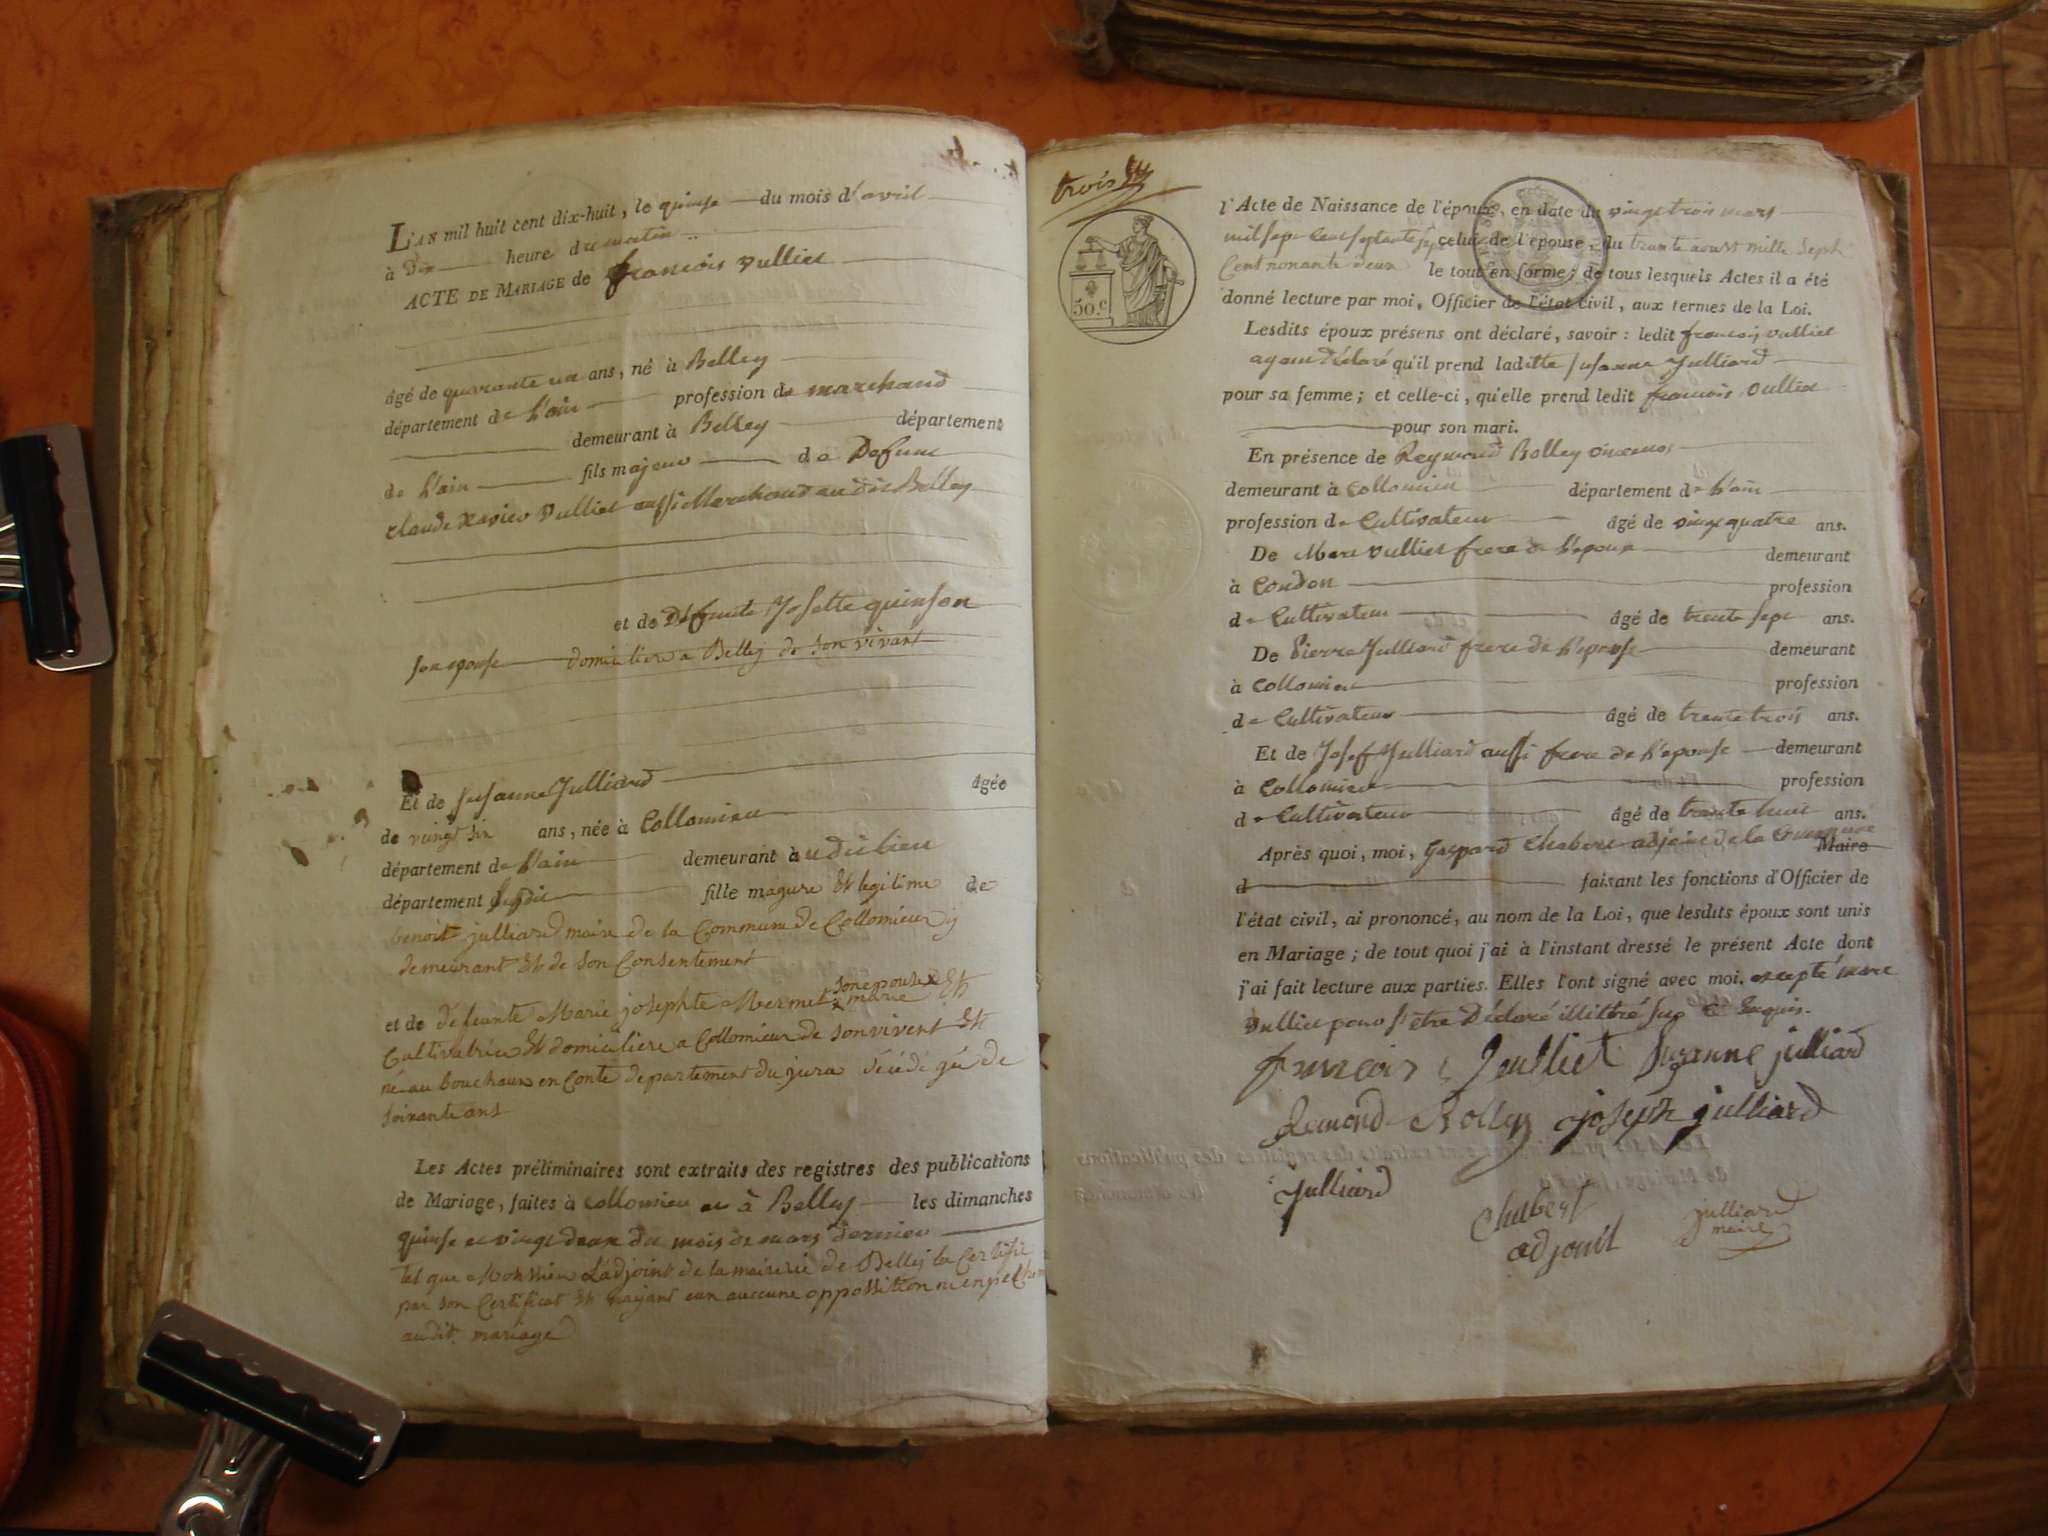 L'AN mil huit cent dix-huit, le quinse du mois d'avril
à Dix heure du matin
ACTE DE MARIAGE de francois vulliet
âgé de quarante un ans, né à Belley
département de L'ain profession de marchand
demeurant à Belley département
de L'ain fils majeur de Defunt
claude Xavier Vulliet aussi Marchand audit Belley
et de Défunte Josette quinson
son epouse domiciliere a Belley de son vivant
Et de Susanne Julliard âgée
de vuingt six ans, née à Collomieu
département de L'ain demeurant audit lieu
département susdit fille magure Et legitime de
benoit julliard maire de la Commune de Collomieu y
demeurant Et de son Consentement
et de défeunte Marie josephte Mermet son epouse Et
Cultivatrice Et domiciliere a Collomieu de son vivent Et
né au bouchaux en Conte departement du jura décédé gé de
soixante ans
Les Actes préliminaires sont extraits des registres des publications
de Mariage, faites à Collomieu et à Belley les dimanches
quinse et vingt deux du mois de mars dernier
tel que Monsieur L'adjoint de la mairerie de Belley la Certifié
par son Certificat Et nayant eun auccune oppossition
audit mariage
trois
50.c
l'Acte de Naissance de l'époux, en date du vingt trois mars
mil sept Cent septante sept celui de l'épouse, du trente aoust mille Sept
Cent nonante deux le tout en forme; de tous lesquels Actes il a été
donné lecture par moi, Officier de l'état civil, aux termes de la Loi.
Lesdits époux présens ont déclaré, savoir : ledit francois vulliet
ayant Déclaré qu'il prend laditte Susanne Julliard
pour sa femme; et celle-ci, qu'elle prend ledit francois Vulliet
pour son mari.
En présence de Reymond Rolley
demeurant à Collomieu département de L'ain
profession de Cultivateur âgé de vingt quatre ans.
De Marc Vulliet frere de L'epoux demeurant
à Condon profession
de Cultivateur âgé de trente sept ans.
De Pierre Julliard frere de L'epouse demeurant
à Collomieu profession
de Cultivateur âgé de trente trois ans.
Et de Josef Julliard aussi frere de L'epouse demeurant
à Collomieu profession
de Cultivateur âgé de trente huit ans.
Après quoi, moi, Gaspard Chabert adjoint de la Commune Maire
d faisant les fonctions d'Officier de
l'état civil, ai prononcé, au nom de la Loi, que lesdits époux sont unis
en Mariage; de tout quoi j'ai à l'instant dressé le présent Acte dont
j'ai fait lecture aux parties. Elles l'ont signé avec moi. excepté marc
Vulliet pour s'être Déclaré illittré Enquis.
francois Vulliet Suzanne julliard
Remond Rolley joseph julliard
Julliard
Chabert
adjouit
julliard
maire